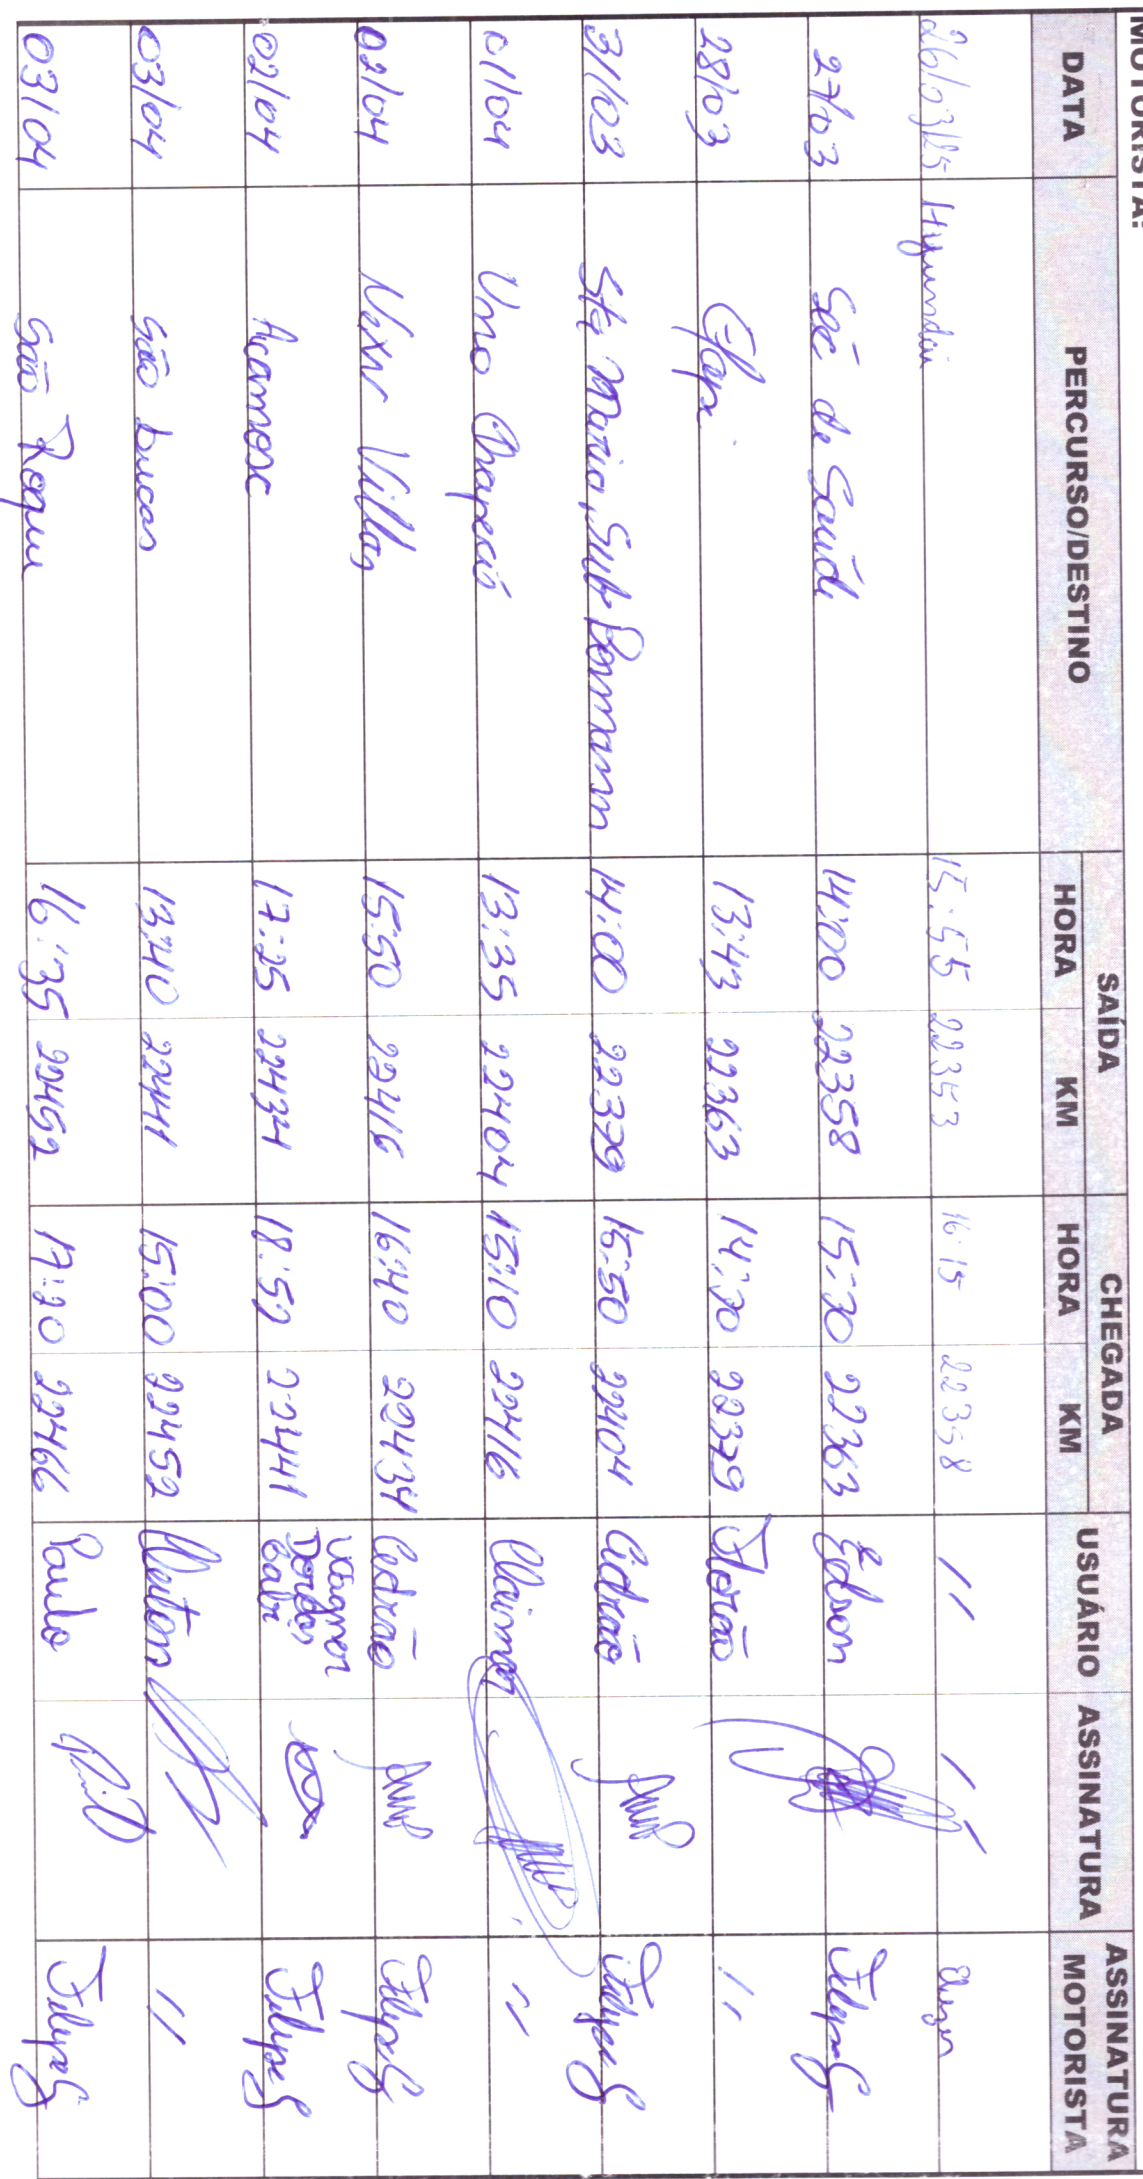 MOTORISTA:
DATA PERCURSO/DESTINO SAÍDA CHEGADA USUÁRIO ASSINATURA ASSINATURA MOTORISTA
HORA KM HORA KM
26/03/25 Hyundai 15:55 22353 16:15 22358 11 11
27/03 Sec de Saúde 14:00 22358 15:30 22363 Edson Felipe G
28/03 13:43 22363 14:30 22379 Florão 11
31/03 Sta Maria, Sub Bormann 14:00 22379 15:50 22404 Cidrão Felipe G
01/04 Uno Chapecó 13:35 22404 15:10 22416 11
02/04 Nexw Villas 15:50 22416 16:40 22434 Cedrão Felipe G
02/04 Acamosc 17:25 22434 18:52 22441 Vaagner Felipe G
03/04 São Lucas 13:40 22441 15:00 22452 11
03/04 São Roque 16:35 22452 17:20 22466 Paulo Felipe G